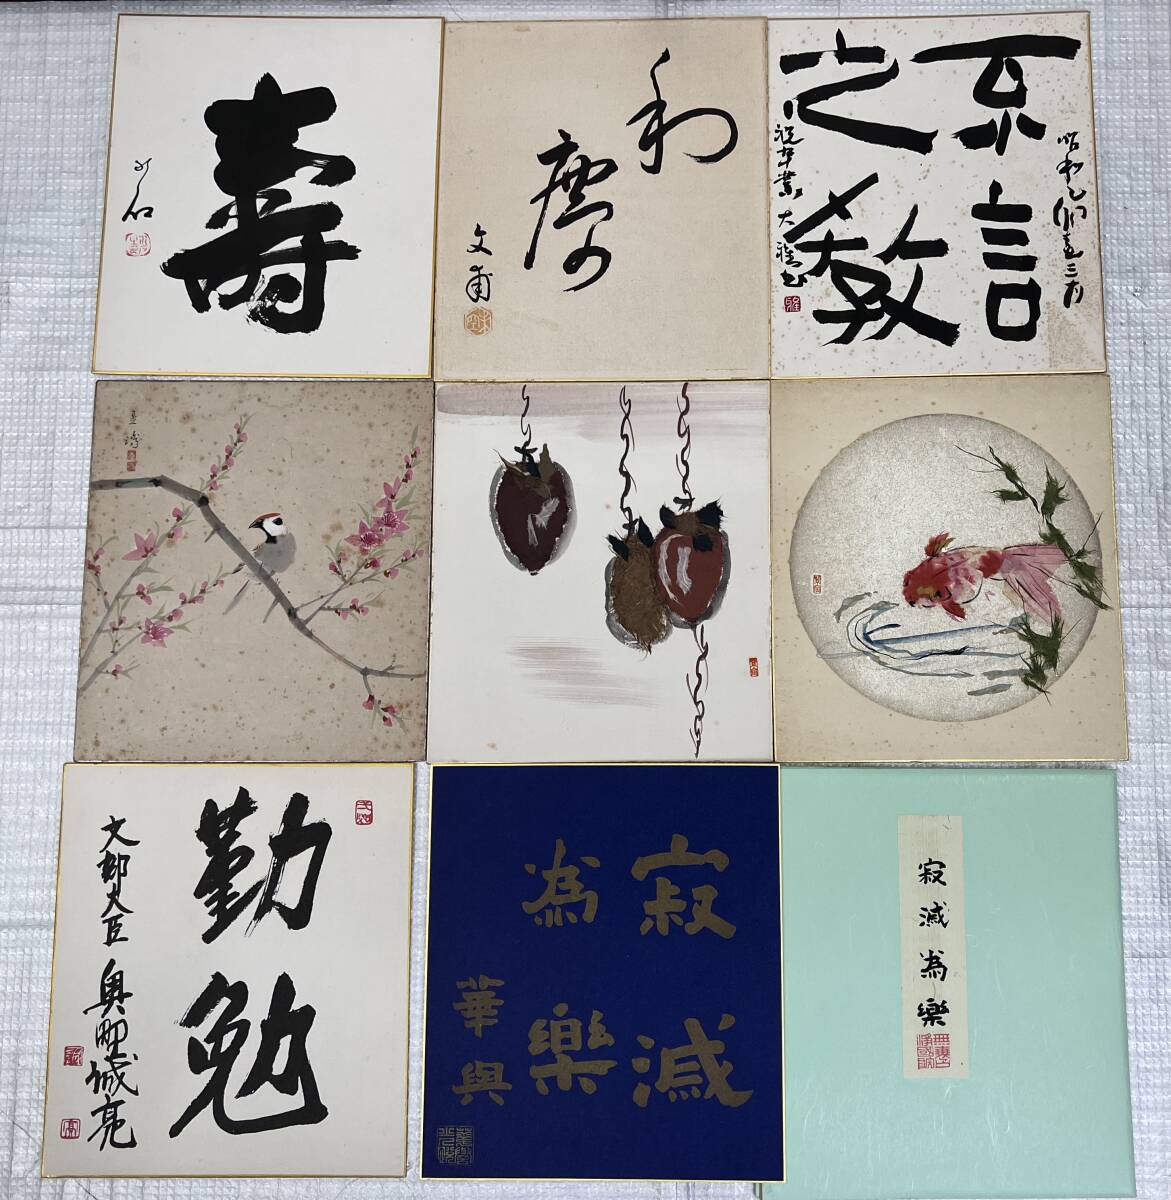 壽
和
塵
文甫
不言
之教
昭和乙卯盡三月
祝卒業 大雅書
勤勉
文部大臣
奥野誠亮
寂滅
為樂
華與
寂滅為樂